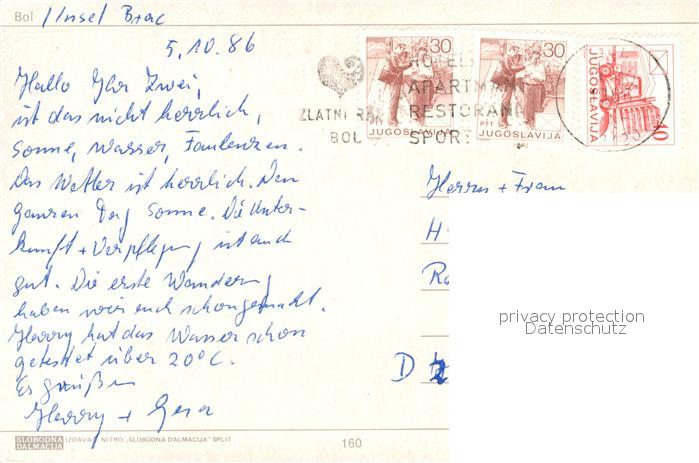 Bol /Insel Brac
5.10.86
Hallo Ihr Zwei,
ist das nicht herrlich,
Sonne, Wasser, Faulenzen.
Das Wetter ist herrlich. Den
ganzen Tag Sonne. Die Unter-
kunft + Verpflegung ist auch
gut. Die erste Wanderung
haben wir auch schon gemacht.
Harry hat das Wasser schon
getestet über 20°C.
Es grüßen
Harry + Gera
30
PTT
JUGOSLAVIJA
30
PTT
JUGOSLAVIJA
40
PTT
JUGOSLAVIJA
ZLATNI RAT
BOL
HOTELI
APARTMANI
RESTORANI
SPORT
Herrn + Frau
H
Ro
D
privacy protection
Datenschutz
SLOBODNA
DALMACIJA
IZDAVAČ NITRO „SLOBODNA DALMACIJA" SPLIT
160